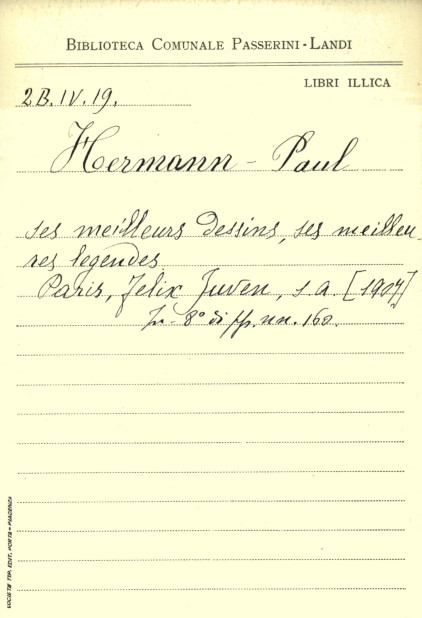 BIBLIOTECA COMUNALE PASSERINI-LANDI
LIBRI ILLICA
2B.IV.19.
Hermann - Paul
ses meilleurs dessins, ses meilleu-
res legendes
Paris, Felix Juven, s.a. [1907]
In-8° di pp. nn. 160.
SOCIETÀ TIP. EDIT. PORTA - PIACENZA